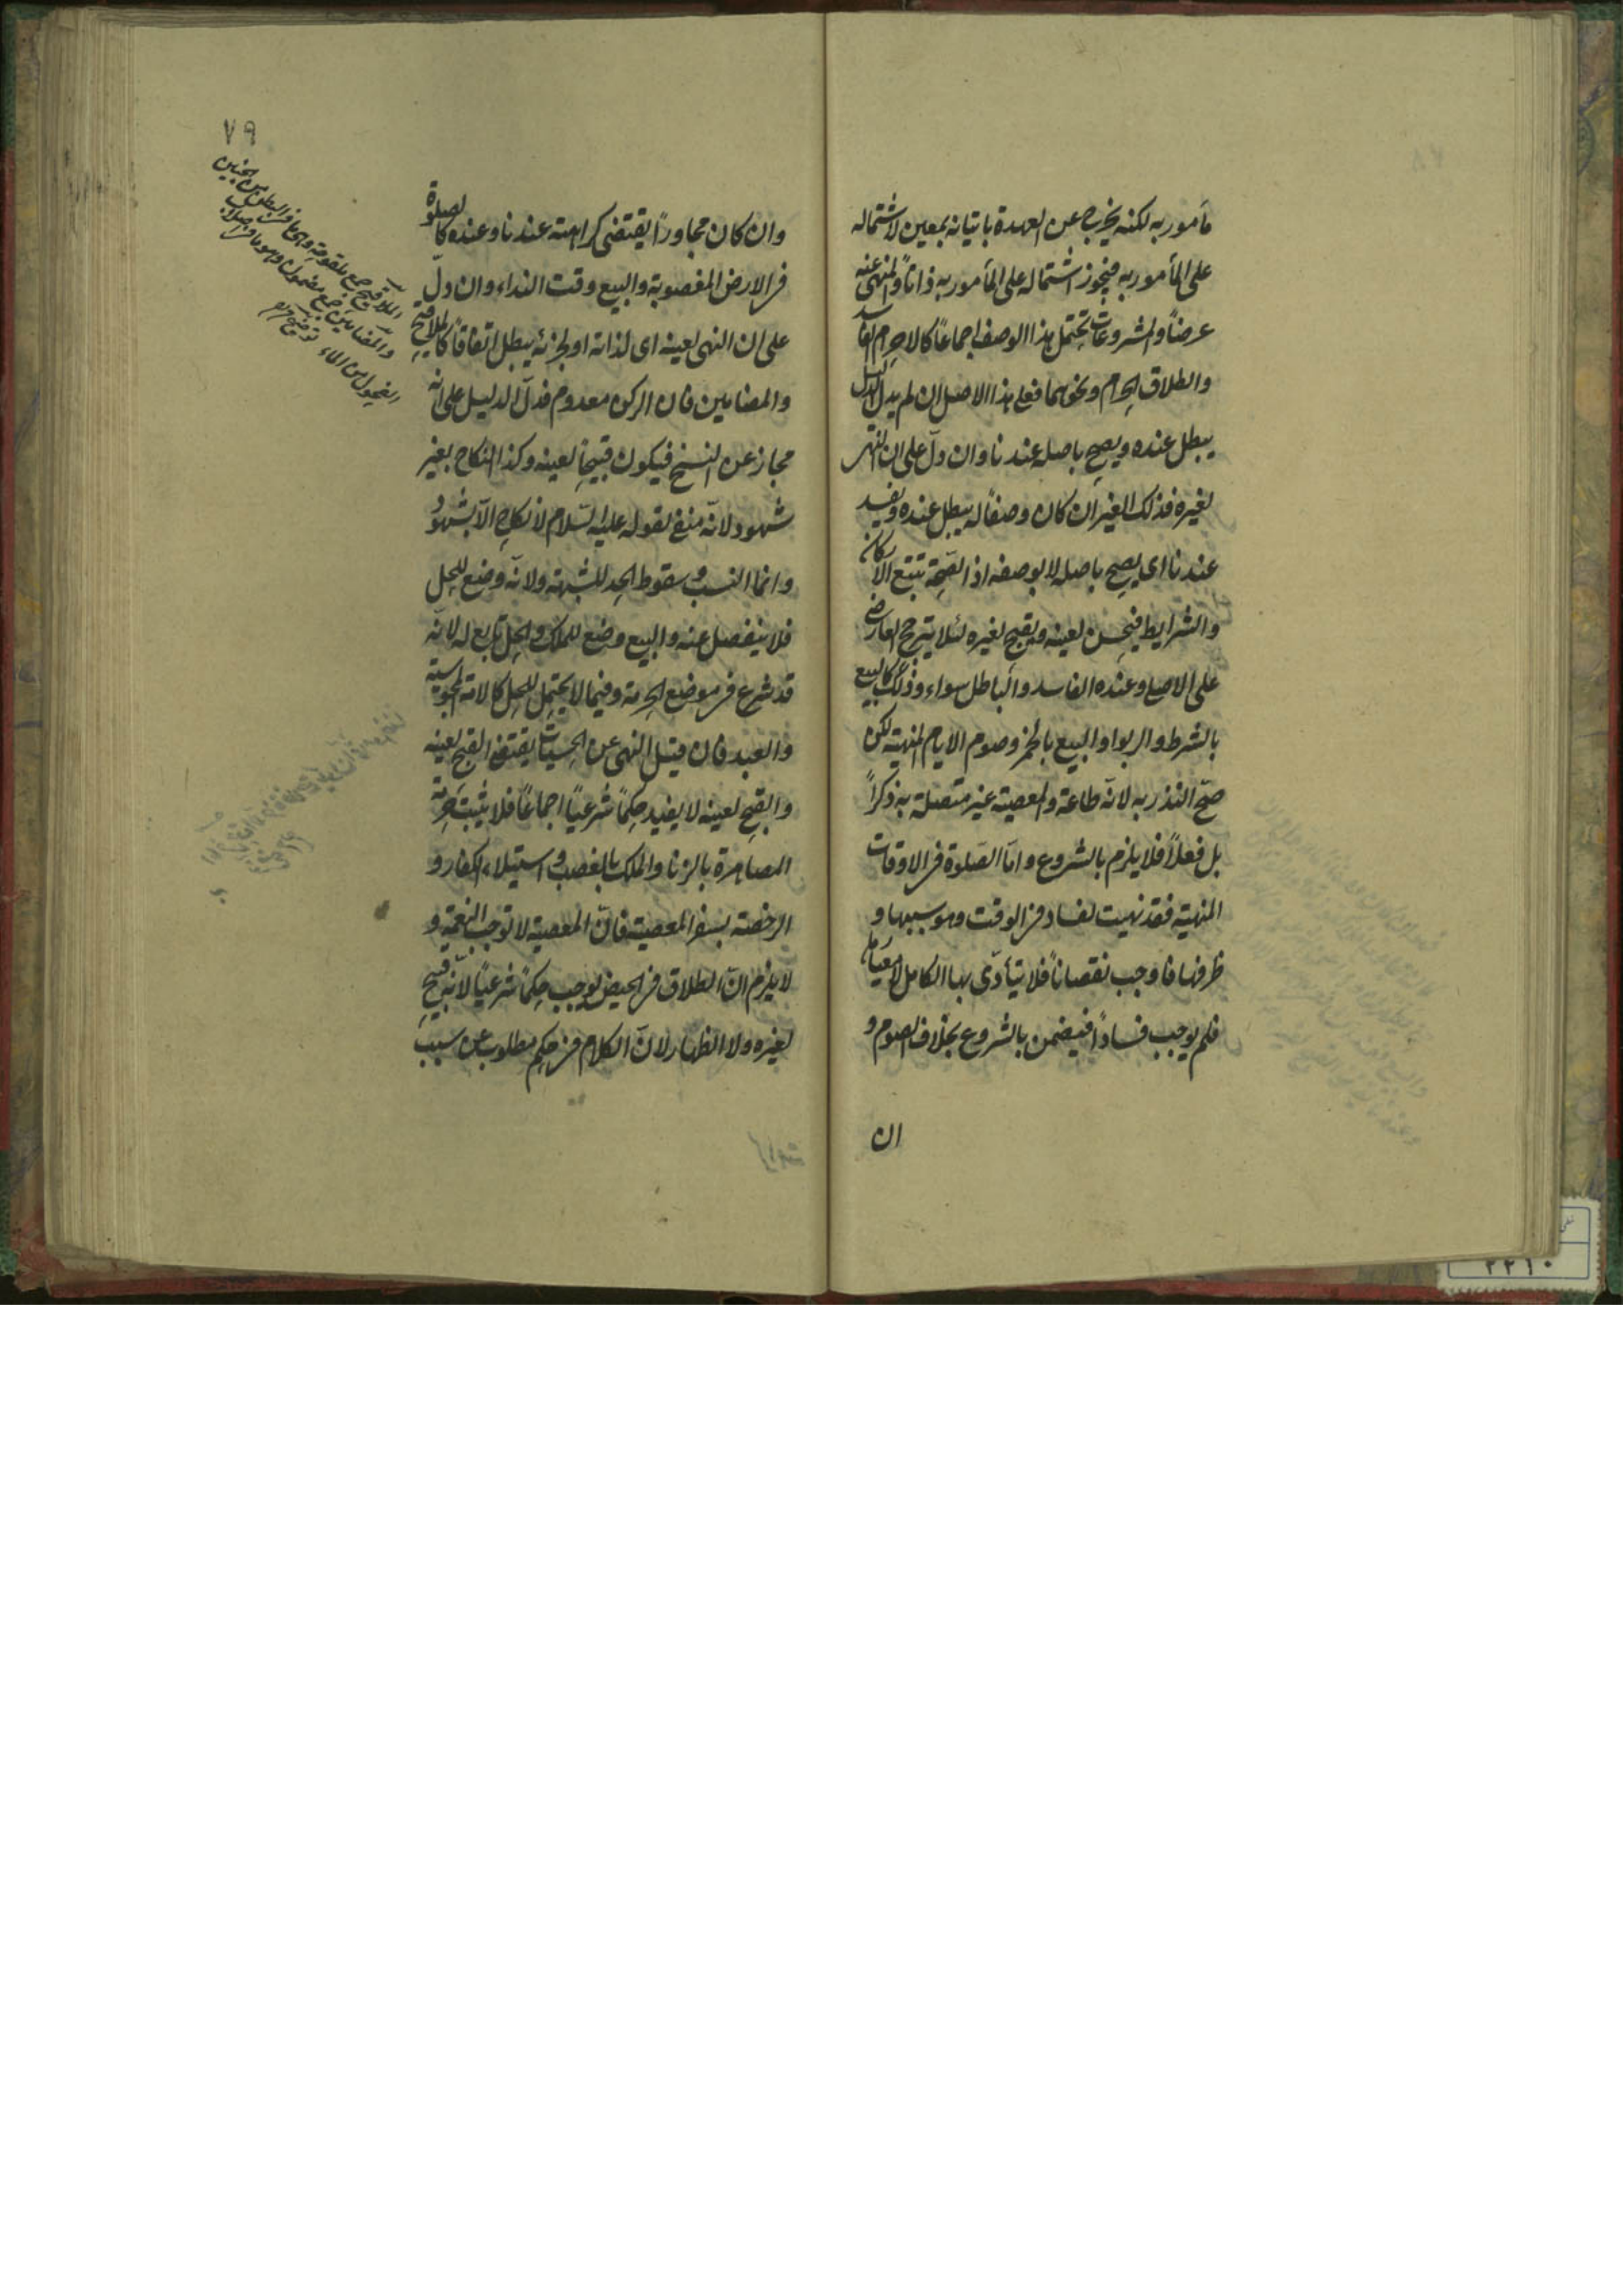 مأمور به لكنه يخرج عن العهدة باتيانه بمعين لاشتماله
على المأمور به فيجوز اشتماله على المأمور به ذاتاً والمنهى عنه
عرضاً والمشروعات تحتمل هذا الوصف اجماعاً كالاحرام الفاسد
والطلاق الحرام ونحوهما فعلى هذا الاصل ان لم يدل الدليل
يبطل عنده ويصح باصله عندنا وان دلّ على ان النهى
لغيره فذلك الغير ان كان وصفاً له يبطل عنده ويفسد
عندنا اى يصح باصله لا بوصفه اذ الصّحّة تتبع الاركان
والشرايط فيحسن لعينه ويقبح لغيره لئلا يترجح العارضى
على الاصلى وعنده الفاسد والباطل سواء وذلك كالبيع
بالشرط والربوا والبيع بالخمر وصوم الايام المنهيّة لكن
صحّ النذر به لانّه طاعة والمعصية غير متصلة به ذكراً
بل فعلاً فلا يلزم بالشروع وامّا الصّلوة فى الاوقات
المنهيّة فقد نهيت لفساد فى الوقت وهو سببها و
ظرفها فاوجب نقصاناً فلا يتأدّى بها الكامل لا معيارها
فلم يوجب فساداً فيضمن بالشروع بخلاف الصوم و
ان
٧٩
وان كان مجاوراً يقتضى كراهته عندنا وعنده كالصلوة
فى الارض المغصوبة والبيع وقت النداء وان دلّ
على ان النهى لعينه اى لذاته او لجزئه يبطل اتفاقاً كالملاقيح
والمضامين فان الركن معدوم فدلّ الدليل على انّه
مجاز عن النسخ فيكون قبيحاً لعينه وكذا النكاح بغير
شهود لانّه منفى لقوله عليه السّلام لا نكاح الّا بشهود
وانما النسب وسقوط الحد للشبهة ولانّه وضع للحل
فلا ينفصل عنه والبيع وضع للملك والحل تابع له لانّه
قد شرع فى موضع الحرمة وفيما لا يحتمل للحل كالامة المجوسيّة
والعبد فان قيل النهى عن الحسيّات يقتضى القبح لعينه
والقبح لعينه لا يفيد حكماً شرعياً اجماعاً فلا يثبت حرمة
المصاهرة بالزنا والملك بالغصب واستيلاء الكفار و
الرخصة بسفر المعصية فانّ المعصية لا توجب النعمة و
لا يلزم انّ الطلاق فى الحيض يوجب حكماً شرعياً لانّه قبيح
لغيره ولا الظهار لانّ الكلام فى حكم مطلوب عن سبب
الملاقيح جمع ملقوحة وهى ما فى البطن من الجنين
والمضامين جمع مضمون وهو ما فى اصلاب
الفحول من الماء
٢٢١٠